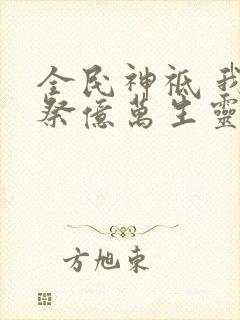 全民神祇 我
祭億萬生靈
方旭東